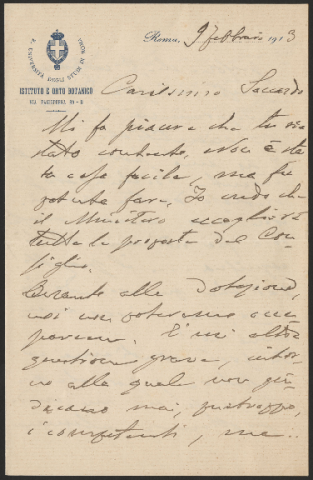 R. UNIVERSITÀ DEGLI STUDI DI ROMA
ISTITUTO E ORTO BOTANICO
VIA PANISPERNA, 89-B
Roma, 9 febbraio 1913
Carissimo Saccardo
Mi fa piacere che tu sia
stato contento. Non è sta
ta cosa facile, ma fu
potuta fare. Io credo che
il Ministero accoglierà
tutta la proposta del Con-
siglio.
Quanto alle dotazioni,
noi non potevamo occu
parcene. È un'altra
questione grave, intor-
no alla quale non giu-
dicano mai, purtroppo,
i competenti, ma..